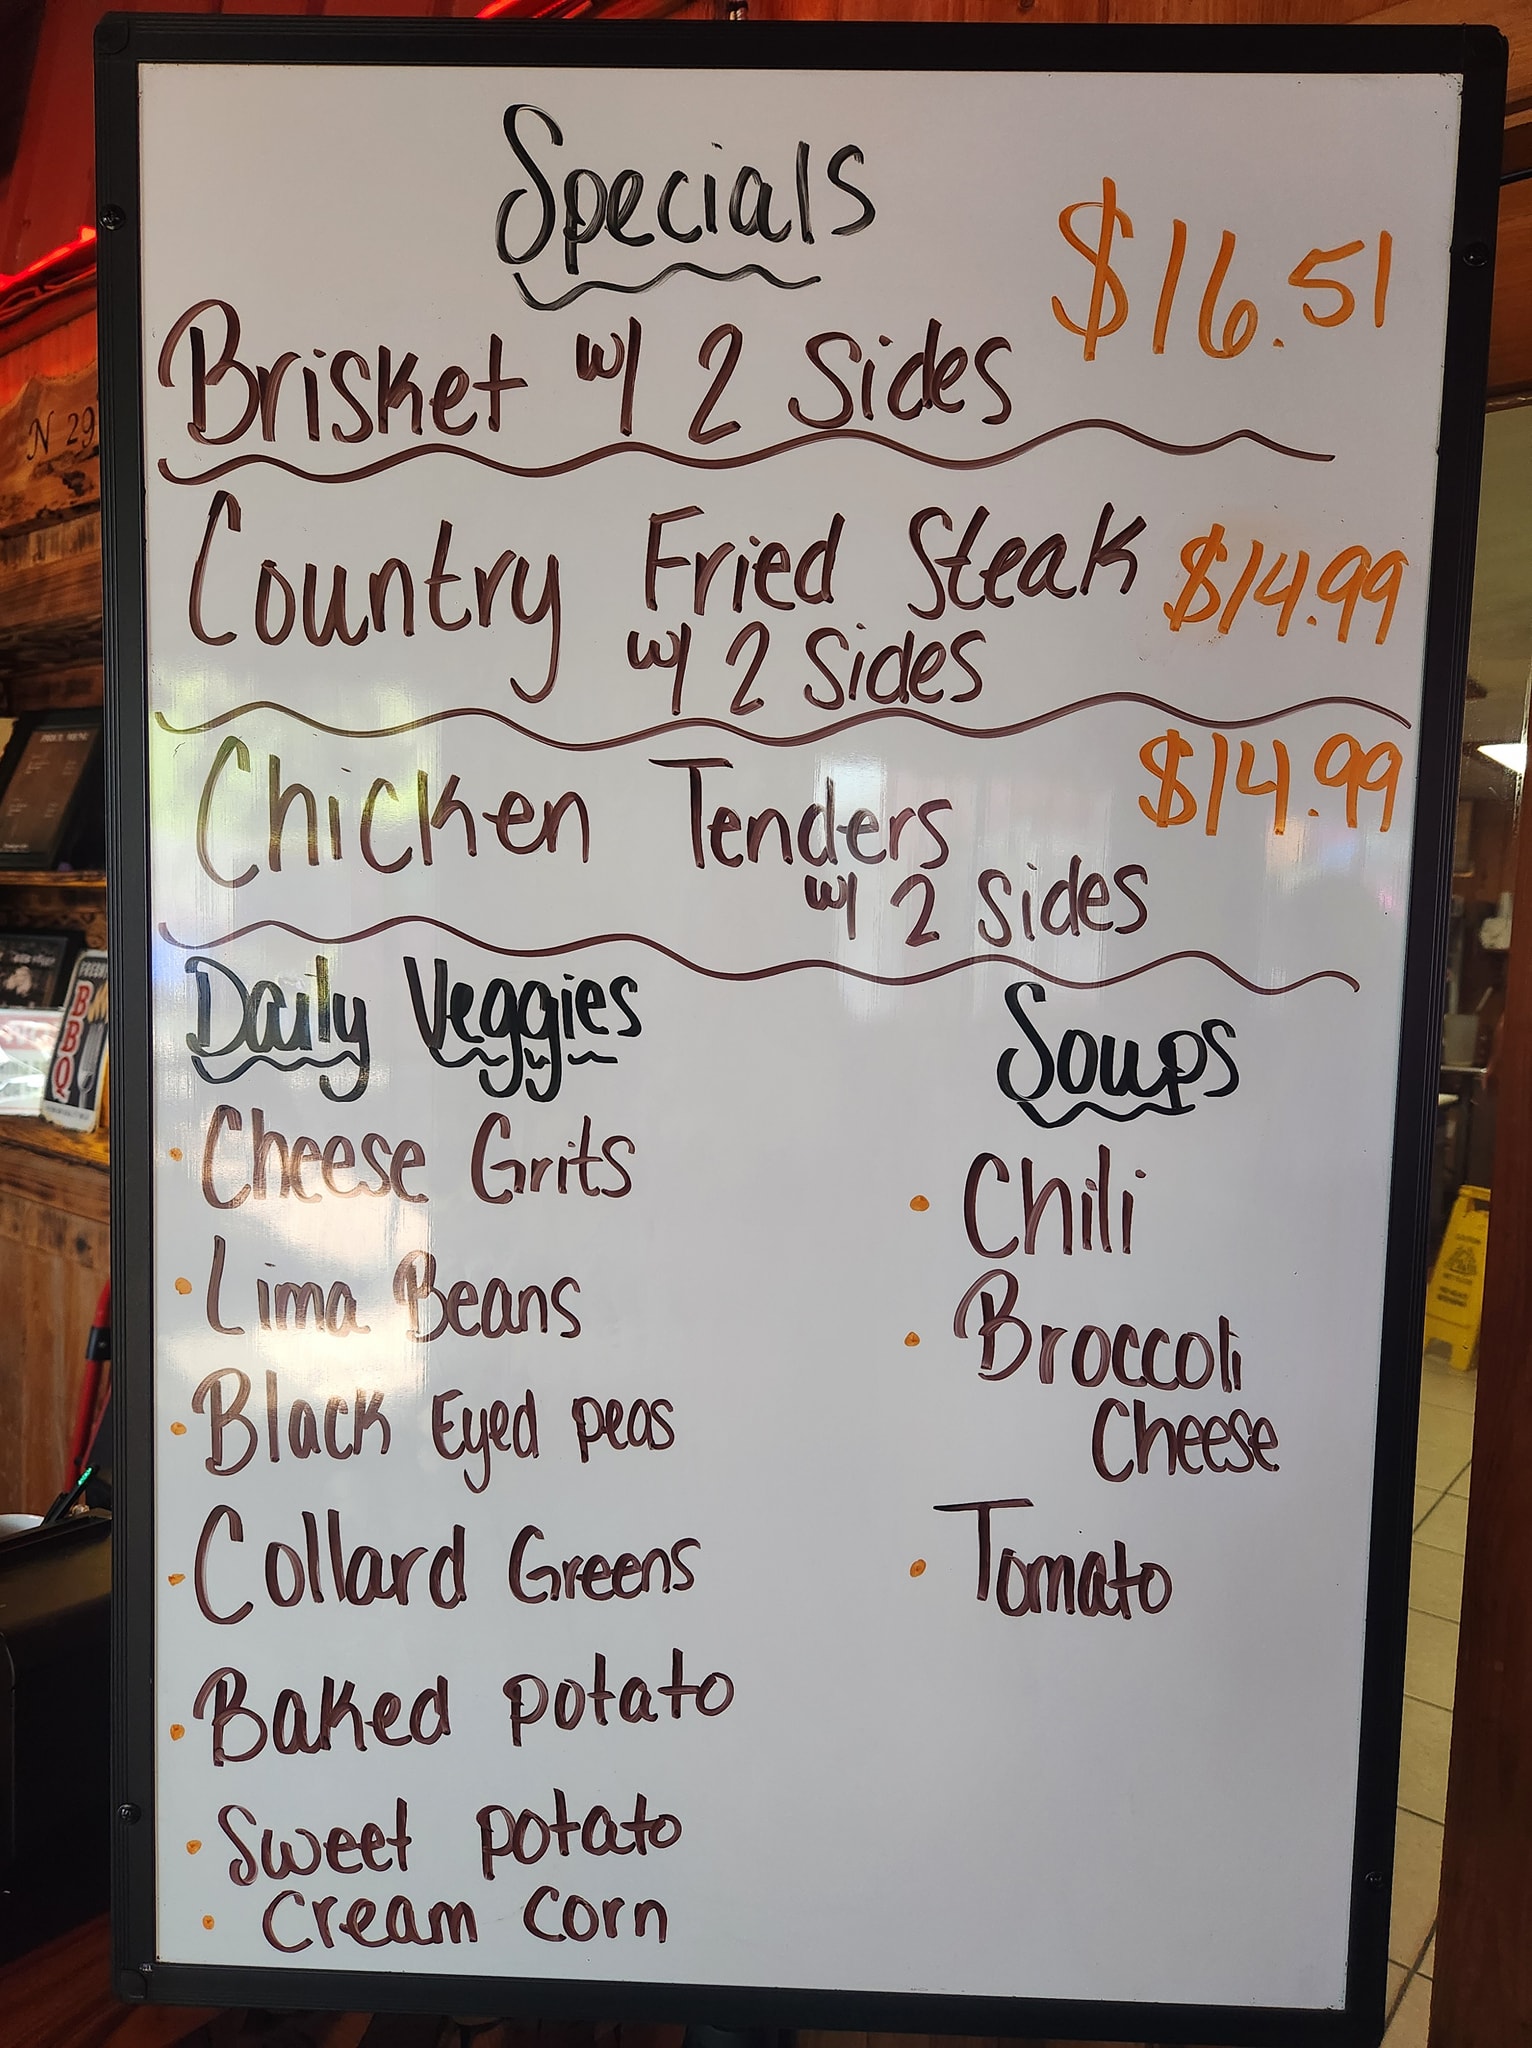 Specials
$16.51
Brisket w/ 2 Sides
Country Fried Steak $14.99
w/ 2 Sides
Chicken Tenders $14.99
w/ 2 sides
Daily Veggies
• Cheese Grits
• Lima Beans
• Black Eyed peas
• Collard Greens
• Baked potato
• Sweet potato
• Cream corn
Soups
• Chili
• Broccoli
Cheese
• Tomato
N 29
BBQ